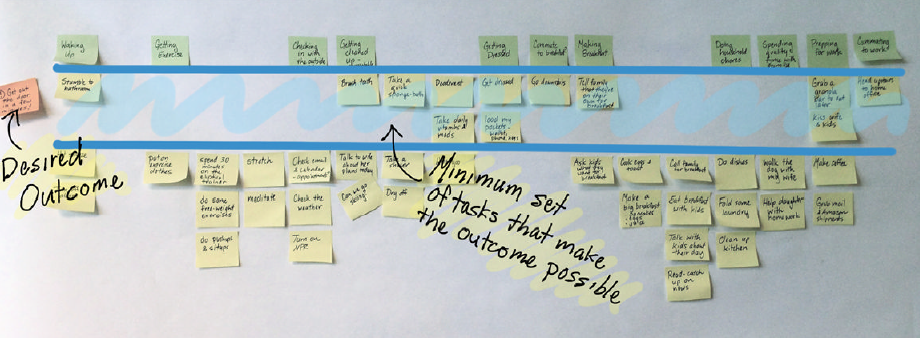 Waking
up
Getting
exercise
Checking
in with
the outside
Getting
cleaned
up
Getting
Dressed
Commute
to breakfast
Making
Breakfast
Doing
household
chores
Spending
quality
time with
Prepping
for work
Commuting
to work
Get out
the door
in a few
Stumble to
bathroom
Brush teeth
Take a
quick
sponge-bath
Deodorant
Get dressed
Go downstairs
Tell family
that they're on
their own for
breakfast
Grab a
granola
bar to eat
later
Head upstairs
to home
office
Take daily
vitamins &
meds
load my
pockets
kiss wife
& kids
Desired
Outcome
Minimum set
of tasks that make
the outcome possible
Put on
exercise
clothes
Spend 30
minutes
on the
trainer
Stretch
Check email
& calendar
appointments
Talk to wife
about her
plans today
Take a
Ask kids
what they
want for
breakfast
Cook eggs &
toast
Call family
for breakfast
Do dishes
Walk the
dog with
my wife
Make coffee
do some
free-weight
exercises
meditate
Check the
weather
Dry off
Make a
big breakfast
Eat Breakfast
with kids
Fold some
laundry
Help daughter
with
homework
Grab mail
& Amazon
shipments
do pushups
& situps
Turn on
NPR
Talk with
kids about
their day
Clean up
kitchen
Read-catch
up on
news